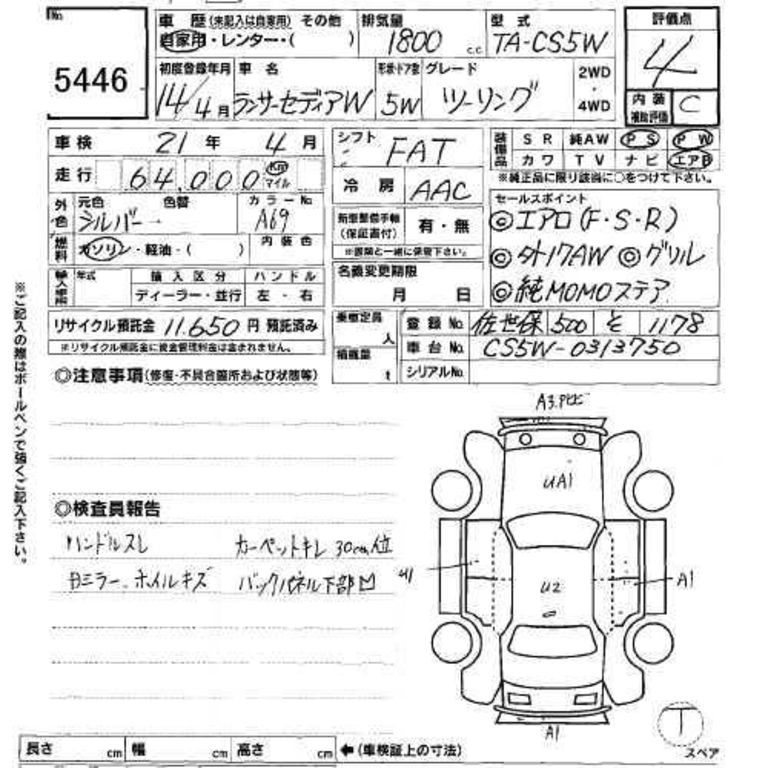 No. 5446
車歴(未記入は自家用) その他 排気量 型式 評価点
自家用・レンター・( ) 1800 c.c TA-CS5W 4
初度登録年月 車名 形状・ドア数 グレード 2WD ・ 4WD
14/4月 ランサーセディアW 5W ツーリング
内装補助評価 C
車検 21年 4月
走行 64,000 Km マイル
シフト FAT
冷房 AAC
装備品 SR 純AW PS PW
カワ TV ナビ エアB
※純正品に限り該当に○をつけて下さい。
外色 元色 色替 カラーNo
シルバー A69
燃料 ガソリン・軽油・( ) 内装色
輸入車 年式 輸入区分 ハンドル
ディーラー・並行 左・右
新車整備手帳(保証書付) 有・無
※書類と一緒に保管下さい。
名義変更期限
月 日
セールスポイント
◎エアロ(F・S・R)
◎外17AW ◎グリル
◎純MOMOステア
リサイクル預託金 11,650円 預託済み
※リサイクル預託金に資金管理料金は含まれません。
乗車定員 人
積載量 t
登録No. 佐世保 500 そ 1178
車台No. CS5W-0313750
シリアルNo.
◎注意事項(修復・不具合箇所および状態等)
◎検査員報告
ハンドルスレ カーペットキレ 30cm位
ミラー、ホイルキズ バックパネル下部凹
A3
UA1
U2
A1
A1
T
スペア
長さ cm 幅 cm 高さ cm ←(車検証上の寸法)
※ご記入の際はボールペンで強くご記入下さい。